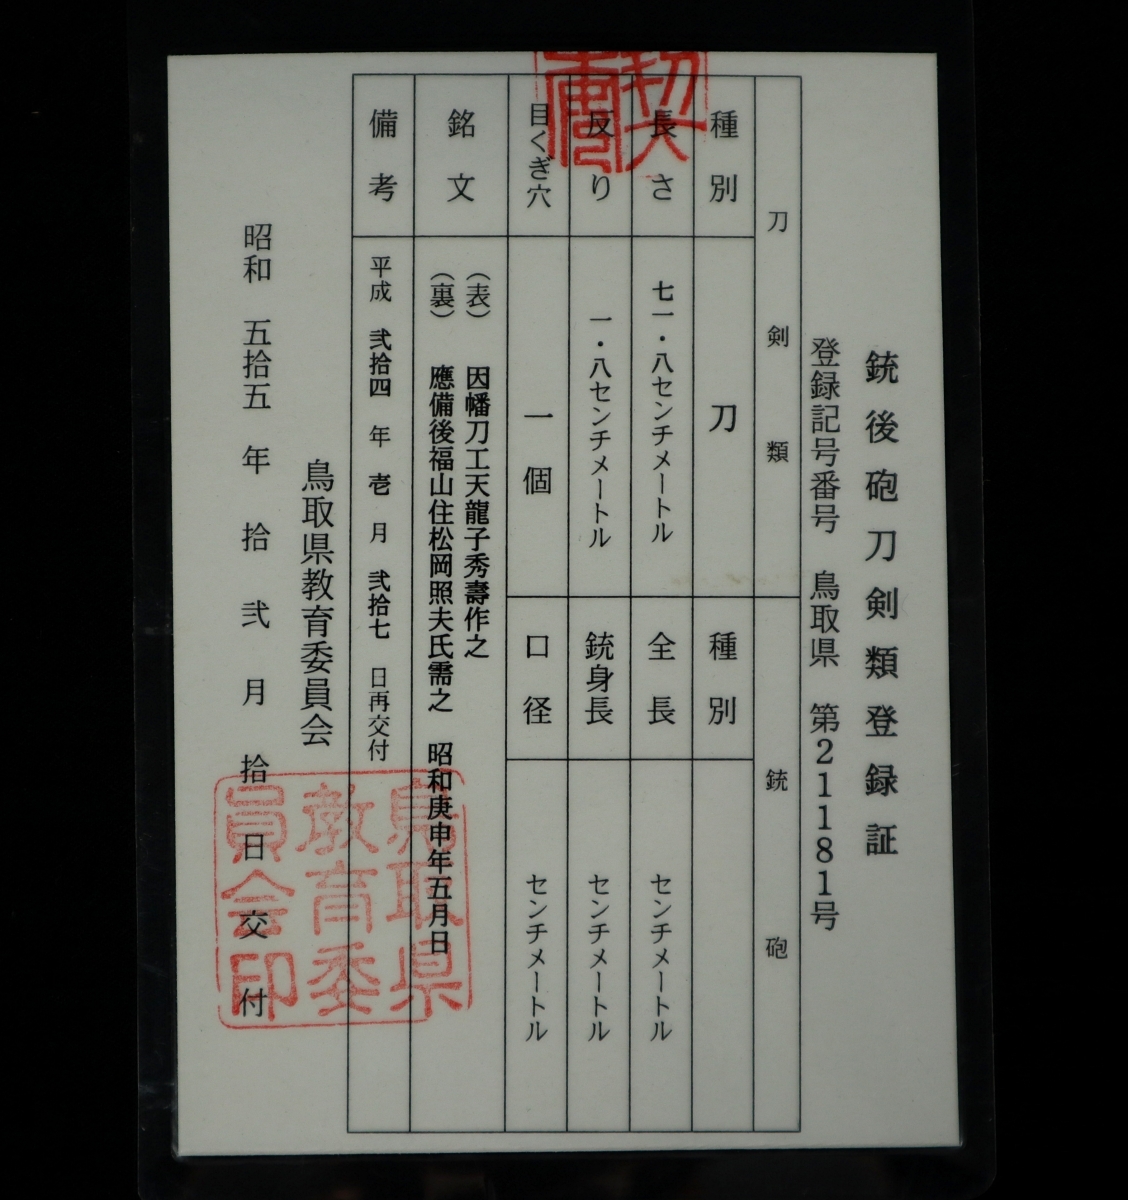 銃後砲刀剣類登録証
登録記号番号 鳥取県 第21181号
刀剣類 銃砲
種別 刀 種別
長さ 七一・八センチメートル 全長 センチメートル
反り 一・八センチメートル 銃身長 センチメートル
目くぎ穴 一個 口径 センチメートル
銘文 (表) 因幡刀工天龍子秀壽作之
(裏) 應備後福山住松岡照夫氏需之 昭和庚申年五月日
備考 平成 弐拾四 年 壱 月 弐拾七 日再交付
鳥取県教育委員会
昭和 五拾五 年 拾弐 月 拾 日交付
鳥取県
教育委
員会印
契